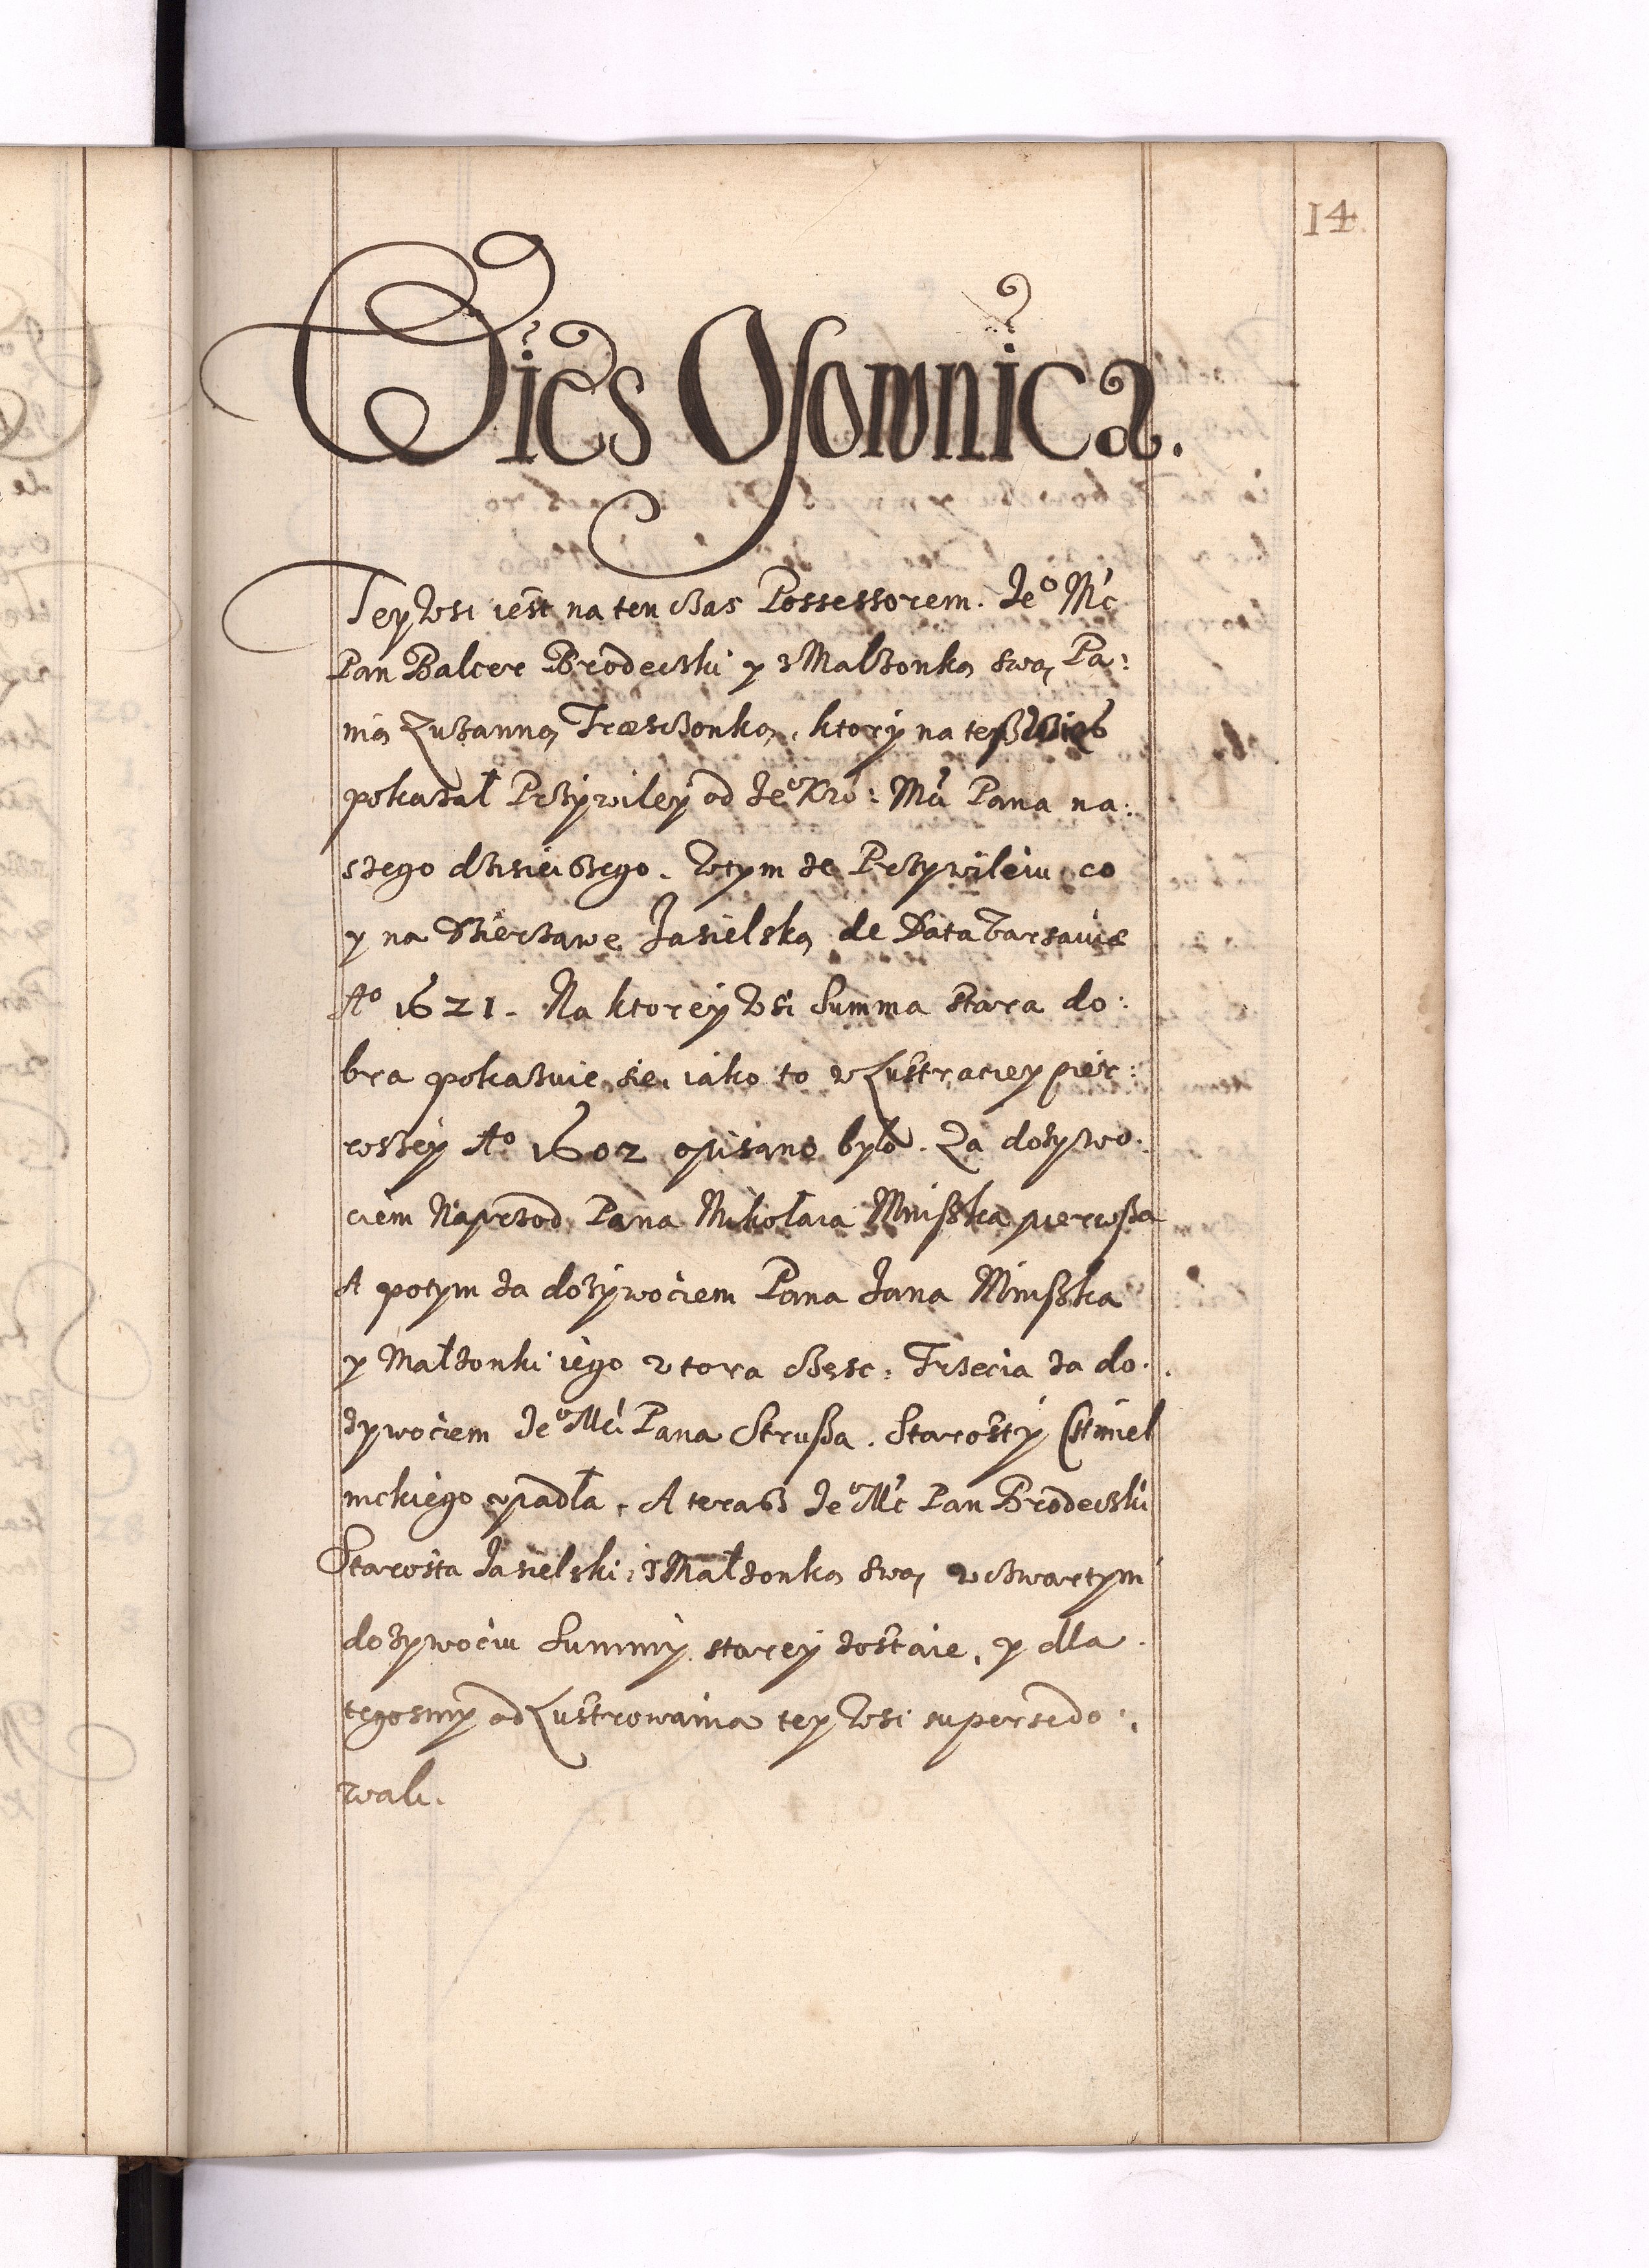 14.
Wies Osownica.
Tey Wsi iest na ten czas Possessorem. Jeº Mć
Pan Balcer Brodeczki y z Malzonką swą Pa:
nią Zuzanną Træsczonką, ktory na tesz Wies
pokazał Przywiley od Jeº Krº: Mći Pana na:
szego dzisieiszego. Wtym ze Przywileiu co
y na Dzierzawę Jasielską de Data Varsaviæ
Aº 1621. Na ktorey Wsi Summa stara do:
bra pokazuie się, iako to w Lustraciey pier:
wszey Aº 1602 opisano było. Za dozywo:
ciem Naprzod Pana Mikołaia Mniszka pierwsza
A potym za dozywociem Pana Jana Mniszka
y Małzonki iego wtora częsc: Trzecia za do:
zywociem Jeº Mći Pana Strusza. Starosty Chmiel
nickiego spadła. A teraz Jeº Mć Pan Brodeczki
Starosta Jasielski, z Małzonką swą w czwartym
dozywociu Summy starey zostaie, y dla
tegosmy od Lustrowania tey Wsi supersedo:
wali.